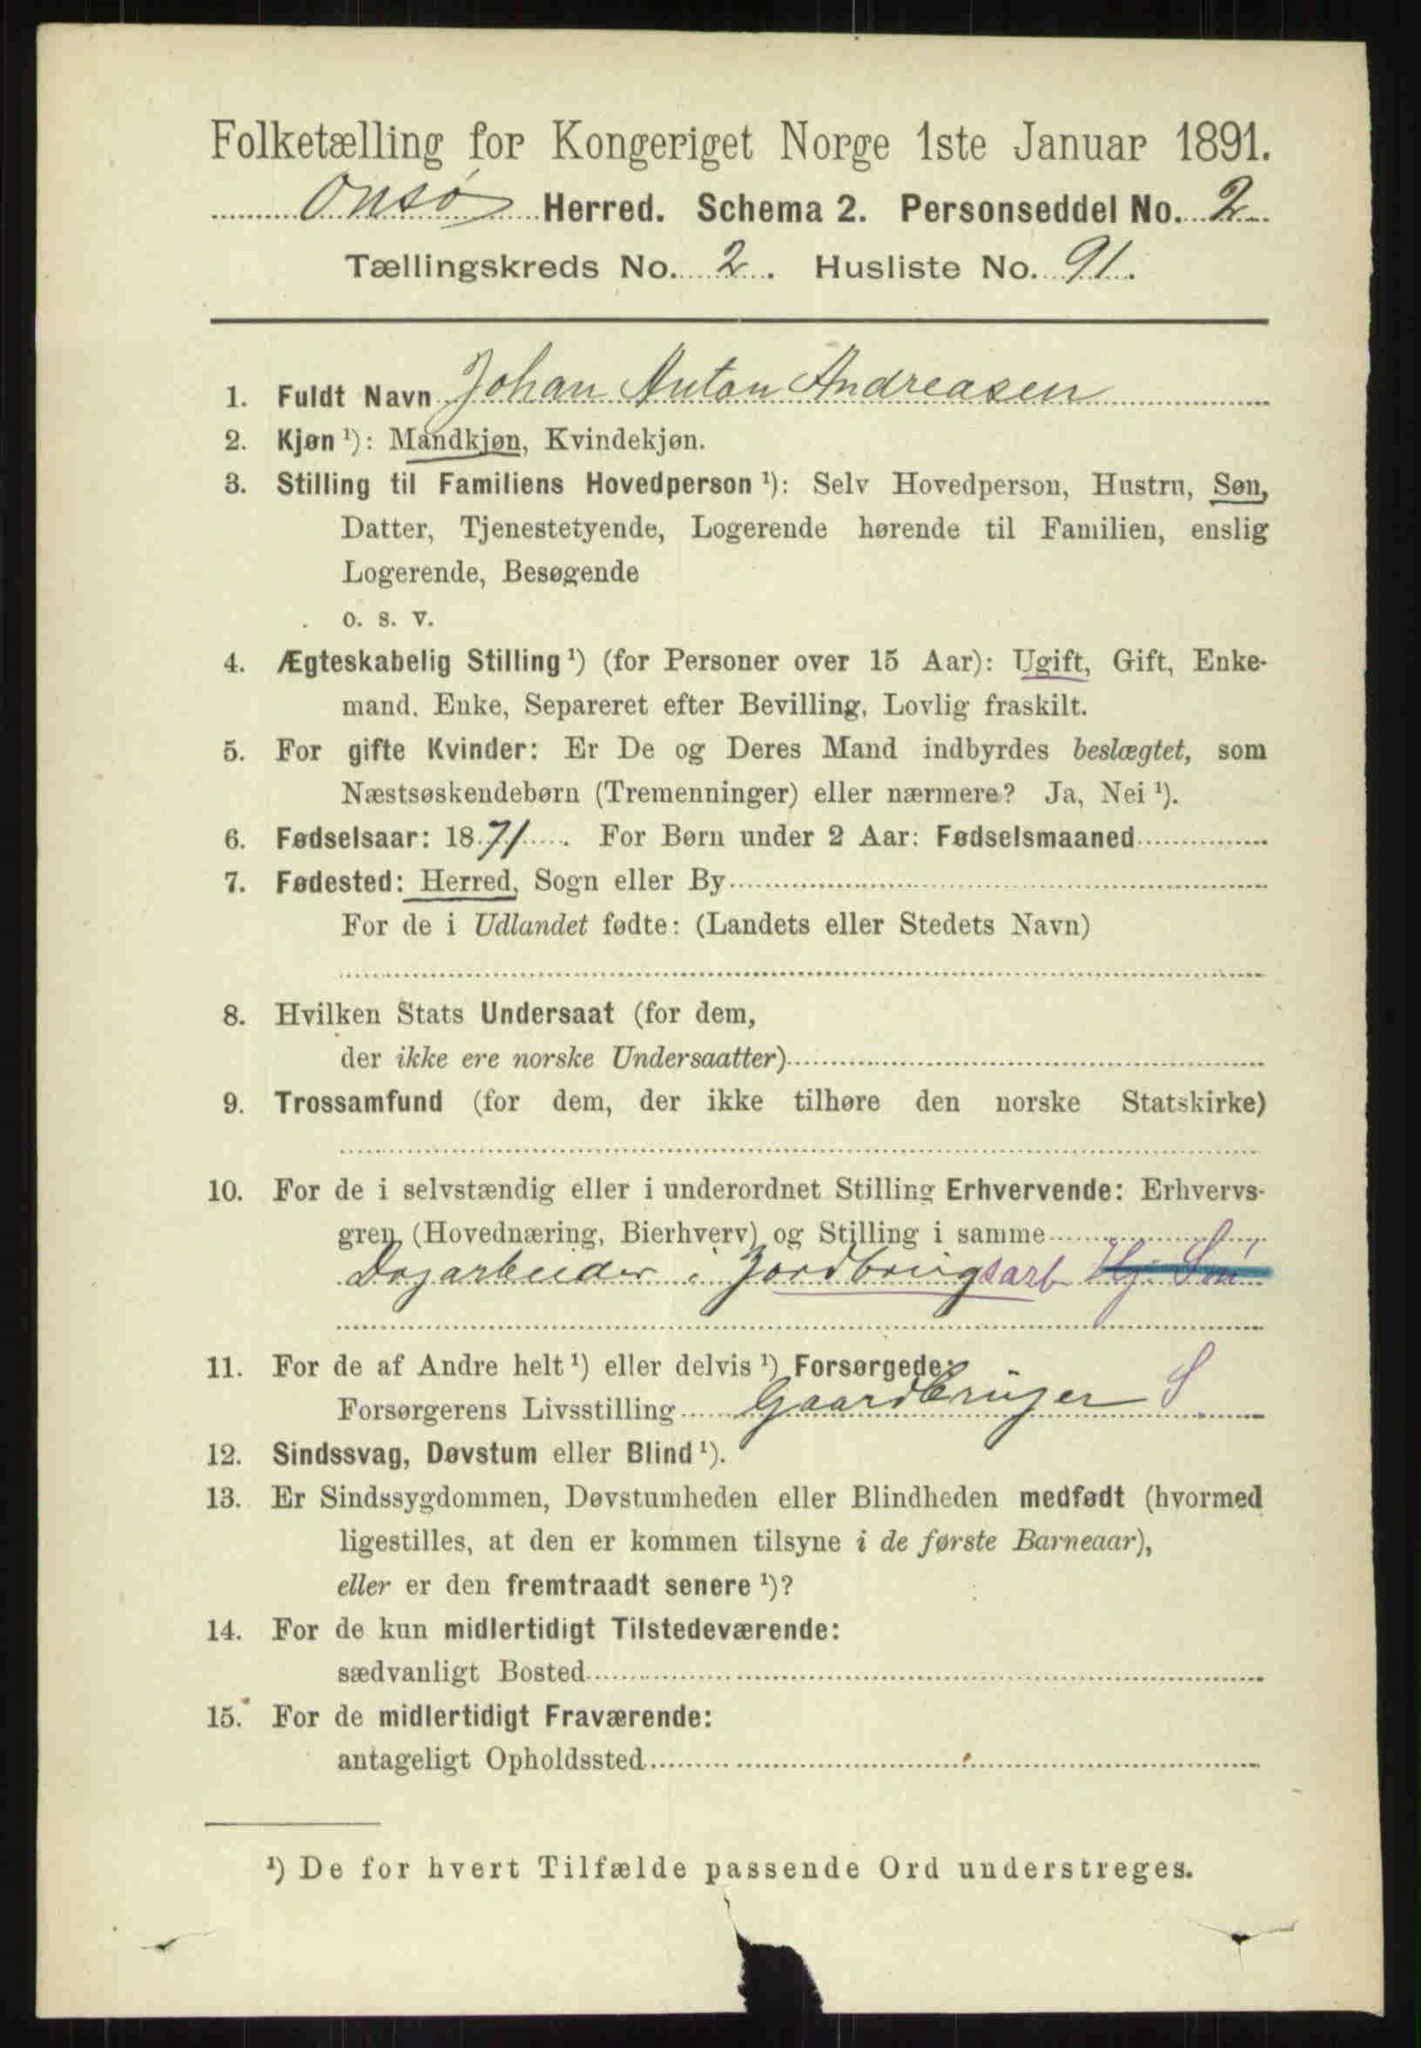 Folketælling for Kongeriget Norge 1ste Januar 1891.
Onsø Herred. Schema 2. Personseddel No. 2
Tællingskreds No. 2. Husliste No. 91.
1. Fuldt Navn Johan Anton Andreasen
2. Kjøn ¹): Mandkjøn, Kvindekjøn.
3. Stilling til Familiens Hovedperson ¹): Selv Hovedperson, Hustru, Søn,
Datter, Tjenestetyende, Logerende hørende til Familien, enslig
Logerende, Besøgende
o. s. v.
4. Ægteskabelig Stilling ¹) (for Personer over 15 Aar): Ugift, Gift, Enke-
mand, Enke, Separeret efter Bevilling, Lovlig fraskilt.
5. For gifte Kvinder: Er De og Deres Mand indbyrdes beslægtet, som
Næstsøskendebørn (Tremenninger) eller nærmere? Ja, Nei ¹).
6. Fødselsaar: 1871. For Børn under 2 Aar: Fødselsmaaned
7. Fødested: Herred, Sogn eller By
For de i Udlandet fødte: (Landets eller Stedets Navn)
8. Hvilken Stats Undersaat (for dem,
der ikke ere norske Undersaatter)
9. Trossamfund (for dem, der ikke tilhøre den norske Statskirke)
10. For de i selvstændig eller i underordnet Stilling Erhvervende: Erhvervs-
gren (Hovednæring, Bierhverv) og Stilling i samme
Dagarbeider i Jordbrugsarb Hj. Søn
11. For de af Andre helt ¹) eller delvis ¹) Forsørgede:
Forsørgerens Livsstilling Gaardbruger S
12. Sindssvag, Døvstum eller Blind ¹).
13. Er Sindssygdommen, Døvstumheden eller Blindheden medfødt (hvormed
ligestilles, at den er kommen tilsyne i de første Barneaar),
eller er den fremtraadt senere ¹)?
14. For de kun midlertidigt Tilstedeværende:
sædvanligt Bosted
15. For de midlertidigt Fraværende:
antageligt Opholdssted
¹) De for hvert Tilfælde passende Ord understreges.